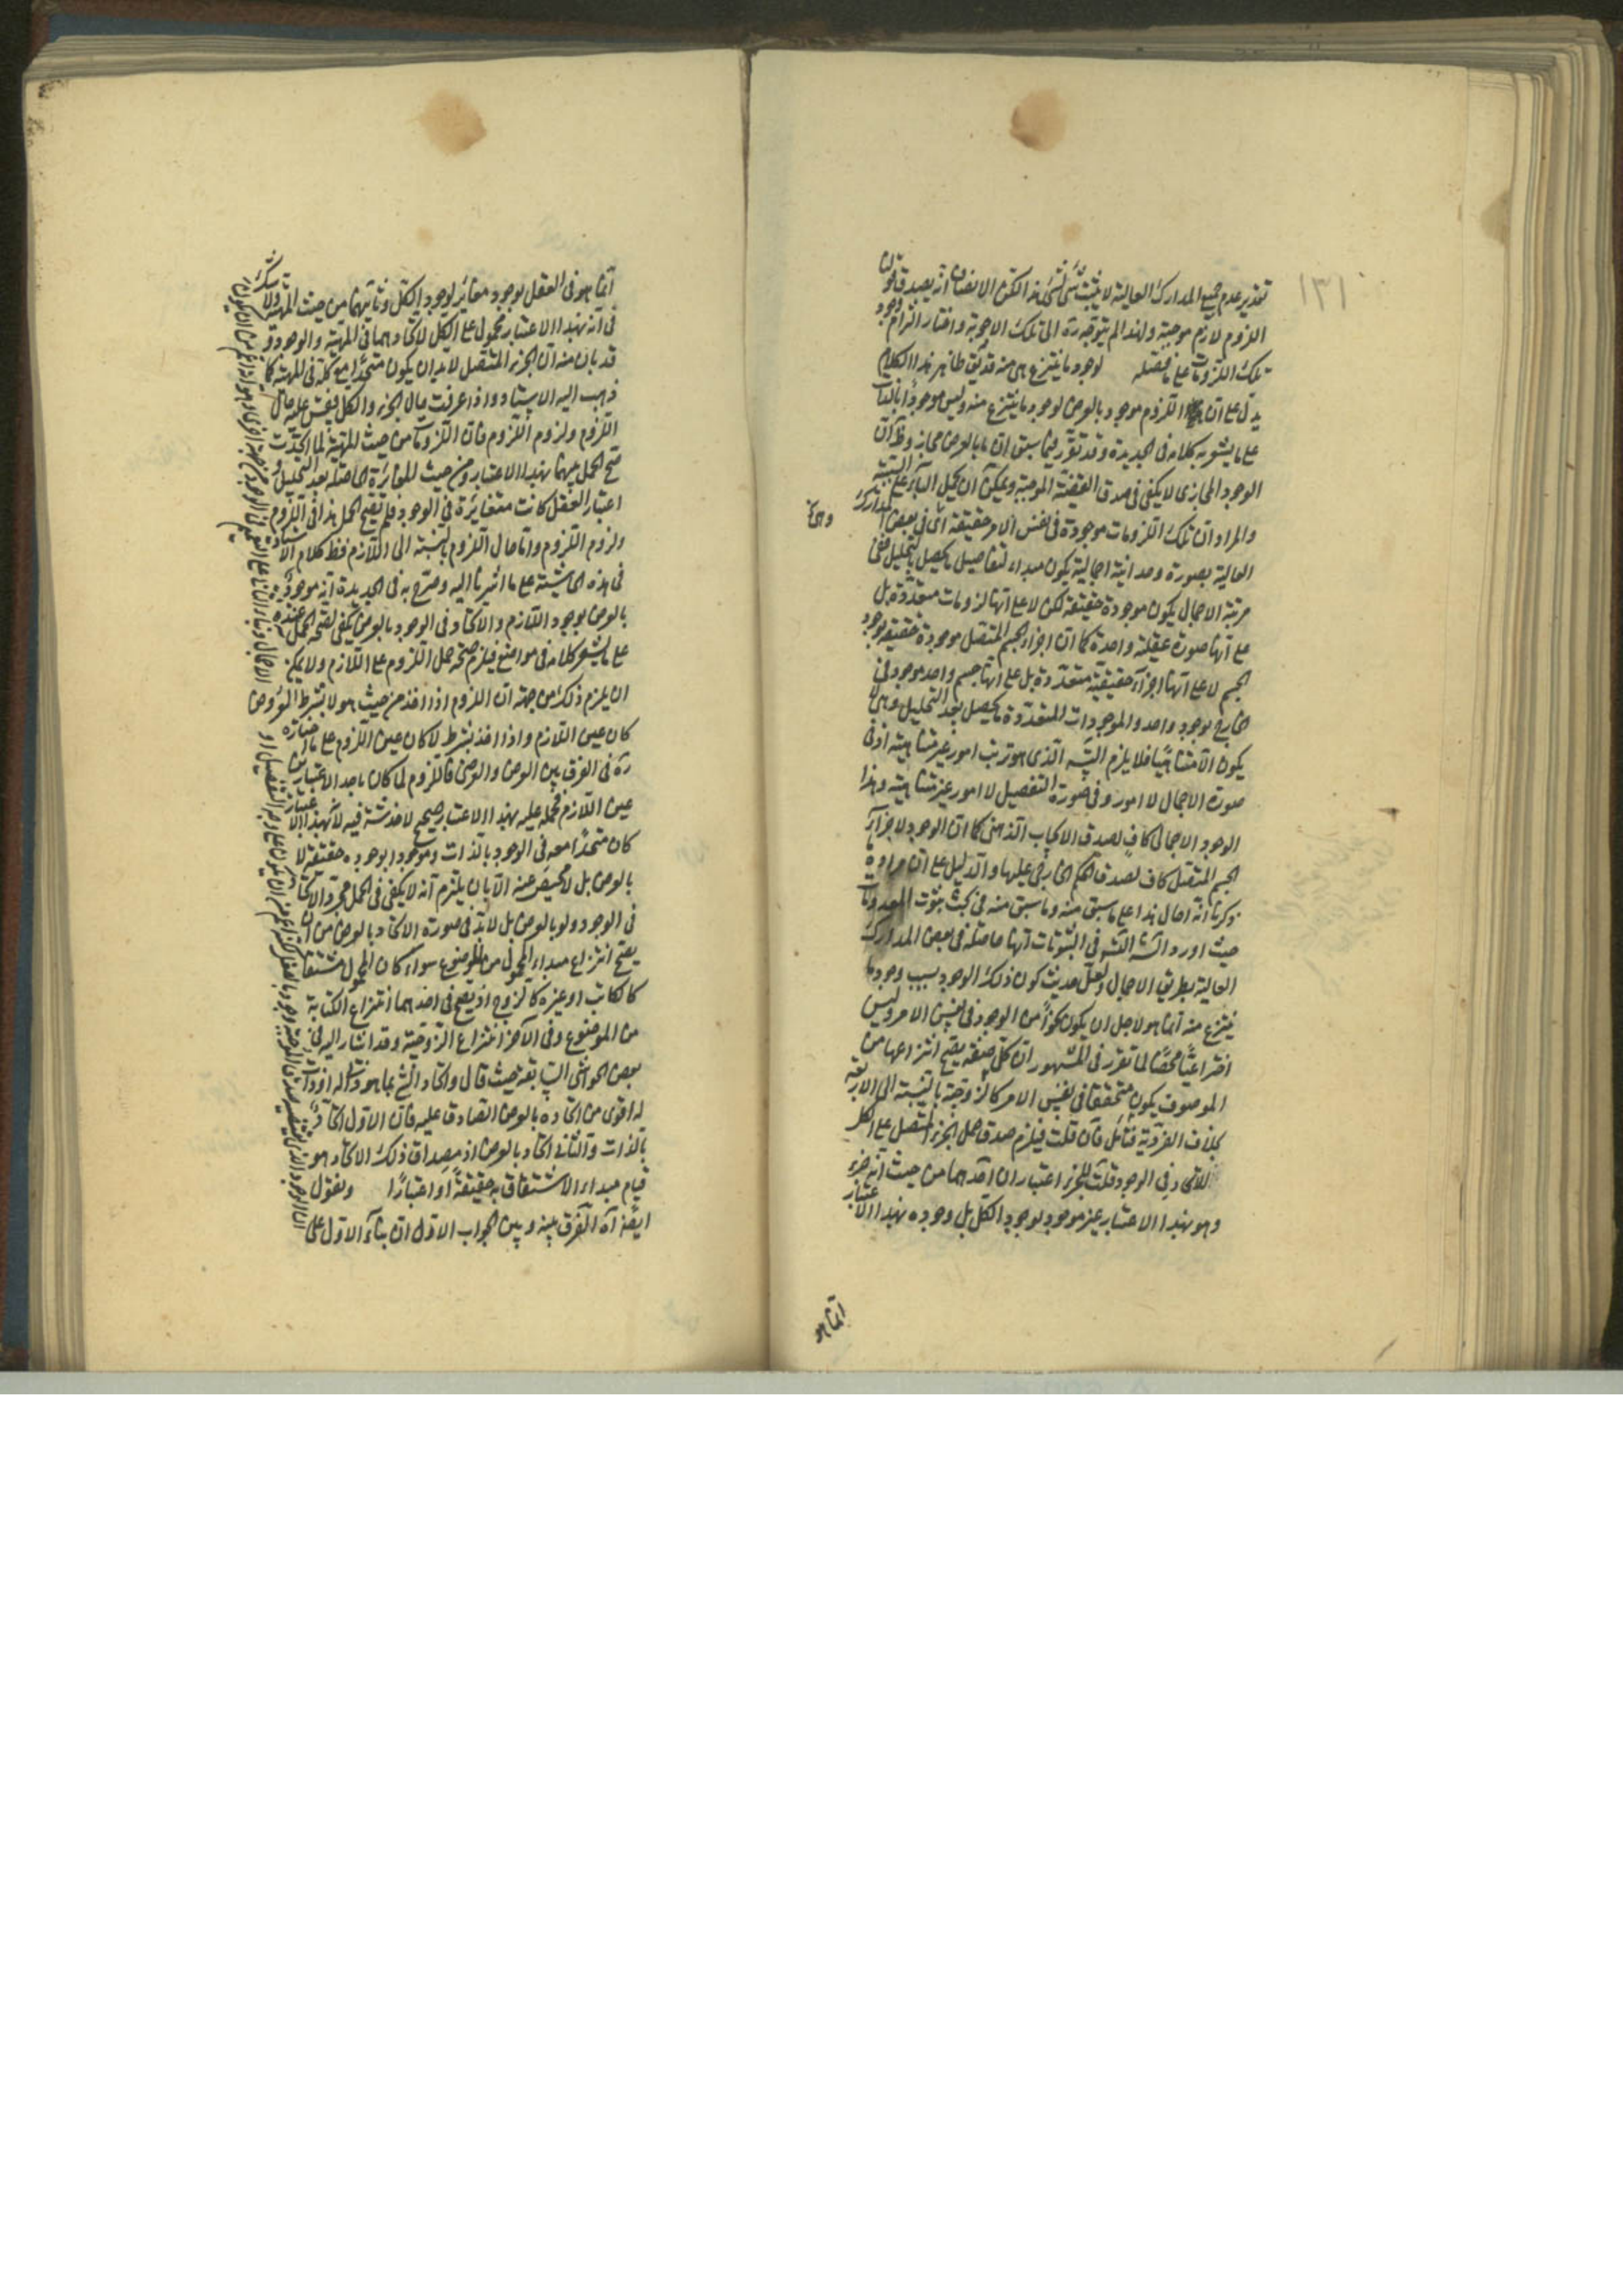 ١٣١
تقدير عدم جميع المدارك العالية لا يثبت شئ لشئ لكن الانصاف انه يصدق قولنا
اللزوم لازم موجبة ولهذا لم يتوجه ره الى تلك الاجوبة واختار التزام وجود
تلك اللزومات على ما فصله لوجود ما ينتزع هى منه قد يق ظاهر هذا الكلام
يدل على ان اللزوم موجود بالعرض لوجود ما ينتزع منه وليس موجودا بالذات
على ما يشعر به كلامه فى الجديدة وقد تقرر فيما سبق ان ما بالعرض مجاز وظ ان
الوجود المجازى لا يكفى فى صدق القضية الموجبة ويمكن ان يحمل الباء على السببية
والمراد ان تلك اللزومات موجودة فى نفس الامر حقيقة اى فى بعض المدارك
العالية بصورة وحدانية اجمالية يكون مبداء لتفاصيل يحصل بالتحليل ففى
مرتبة الاجمال يكون موجودة حقيقة لكن لا على انها لزومات متعددة بل
على انها صورة عقلية واحدة كما ان اجزاء الجسم المتصل موجودة حقيقة بوجود
الجسم لا على انها اجزاء حقيقية متعددة بل على انها جسم واحد موجود فى
الخارج بوجود واحد والموجودات المتعددة يحصل بعد التحليل وهى لا
يكون الا متناهيا فلا يلزم التسه الذى هو ترتب امور غير متناهية اذ فى
صورة الاجمال لا امور وفى صورة التفصيل لا امور غير متناهية وهذا
الوجود الاجمالى كاف لصدق الايجاب الذهنى كما ان الوجود لاجزاء
الجسم المتصل كاف لصدق الحكم الخارجى عليها والدليل على ان مراده
ذكرنا انه احال هذا على ما سبق منه وما سبق منه فى بحث ثبوت المعدومات
حيث اورد التسه فى الثبوتات انها حاصلة فى بعض المدارك
العالية بطريق الاجمال ولعل حديث كون ذلك الوجود بسبب وجود ما
ينتزع منه انما هو لاجل ان يكون نحوا من الوجود فى نفس الامر وليس
اختراعيا محضا لما تقرر فى المشهور ان كل صفة يصح انتزاعها من
الموصوف يكون متحققا فى نفس الامر كالزوجية بالنسبة الى الاربعة
بخلاف الفردية فتأمل فان قلت فيلزم صدق حمل الجزء المتصل على الكل
للاتحاد فى الوجود قلت للجزء اعتباران احدهما من حيث انه جزء
وهو بهذا الاعتبار غير موجود بوجود الكل بل وجوده بهذا الاعتبار
انما هو
انما هو فى العقل بوجود مغائر لوجود الكل وثانيهما من حيث المهية ولا شك
فى انه بهذا الاعتبار محمول على الكل لاتحادهما فى المهية والوجود و
قد بان منه ان الجزء المتصل لابد ان يكون متحدا مع كله فى المهية كما
ذهب اليه الاستاد واذا عرفت حال الجزء والكل فقس عليه حال
اللزوم ولزوم اللزوم فان اللزومات من حيث المهية لما اتحدت
صح الحمل بينها بهذا الاعتبار ومن حيث المغائرة الحاصلة بعد التحليل و
اعتبار العقل كانت متغائرة فى الوجود فلم يصح الحمل هذا فى اللزوم
ولزوم اللزوم واما حال اللزوم بالنسبة الى اللازم فظ كلام الاستاد
فى هذه الحاشية على ما اشرنا اليه وصرح به فى الجديدة انه موجود
بالعرض بوجود اللازم والاتحاد فى الوجود بالعرض يكفى لصحة الحمل عنده
على ما يشعر كلامه فى مواضع فيلزم صحة حمل اللزوم على اللازم ولا يمكن
ان يلزم ذلك من جهة ان اللزوم اذا اخذ من حيث هو لا بشرط المعروض
كان عين اللازم واذا اخذ بشرط لا كان عين اللزوم على ما اختاره
ره فى الفرق بين العرض والعرضى فاللزوم لما كان باحد الاعتبارين
عين اللازم فحمله عليه بهذا الاعتبار صحيح لا خدشة فيه لانه بهذا الاعتبار
كان متحدا معه فى الوجود بالذات وموجودا بوجوده حقيقة لا
بالعرض بل لا محيص عنه الا بان يلتزم انه لا يكفى فى الحمل مجرد الاتحاد
فى الوجود ولو بالعرض بل لابد فى صورة الاتحاد بالعرض من ان
يصح انتزاع مبداء المحمول من الموضوع سواء كان المحمول مشتقا
كالكاتب او غيره كالزوج اذ يصح فى احدهما انتزاع الكتابة
من الموضوع وفى الآخر انتزاع الزوجية وقد اشار اليه فى
بعض الحواشى السابقة حيث قال واتحاد الشئ بما هو ذات له او ذاتى
له اقوى من اتحاده بالعرض الصادق عليه فان الاول اتحاد
بالذات والثانى اتحاد بالعرض اذ مصداق ذلك الاتحاد هو
قيام مبداء الاشتقاق به حقيقة او اعتبارا ونقول
ايضا اه الفرق بينه وبين الجواب الاول ان بناء الاول على